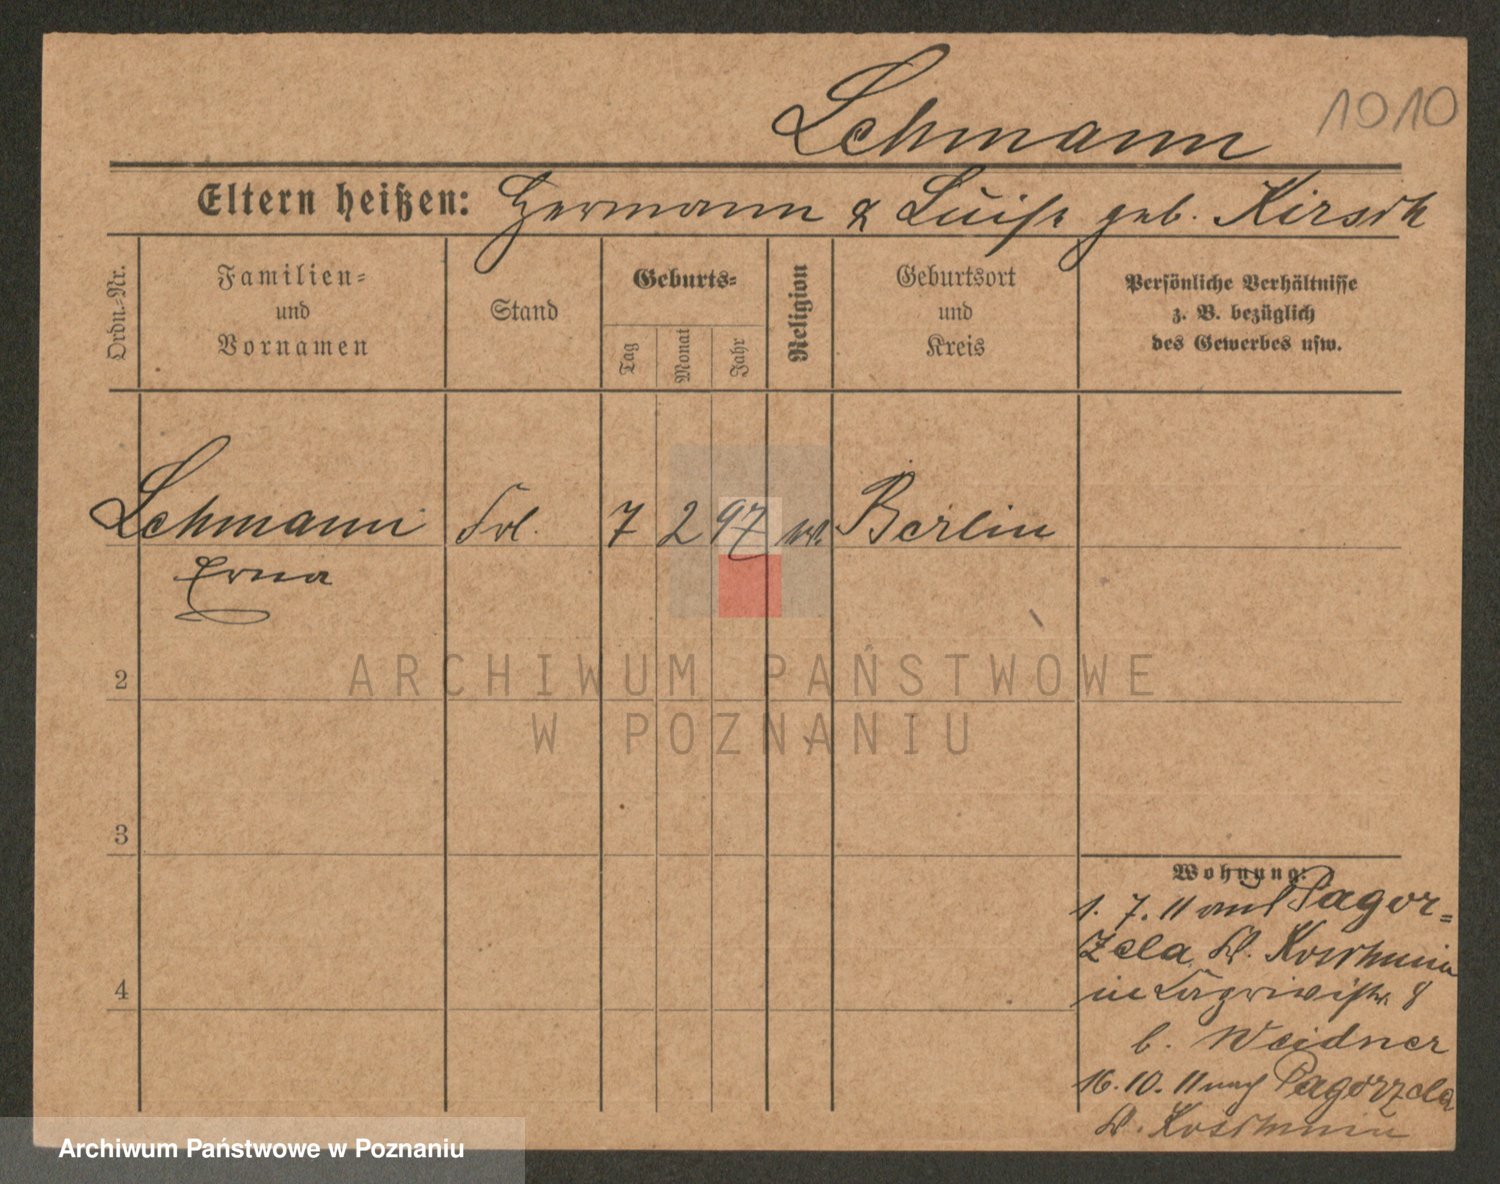 Lehmann
1010
Eltern heißen: Hermann & Luise geb. Kirsch
Ordn.-Nr.
Familien-
und
Vornamen
Stand
Geburts-
Tag
Monat
Jahr
Religion
Geburtsort
und
Kreis
Persönliche Verhältnisse
z. B. bezüglich
des Gewerbes usw.
Lehmann Frl. 7 2 97 Berlin
Erna
2
ARCHIWUM PAŃSTWOWE
W POZNANIU
3
Wohnung:
1. 7. 11 Pagor=
zela, Kr. Koschmin
in 8
b. Weidner
4
16. 10. 11 nach Pagorzela
Kr. Koschmin
Archiwum Państwowe w Poznaniu